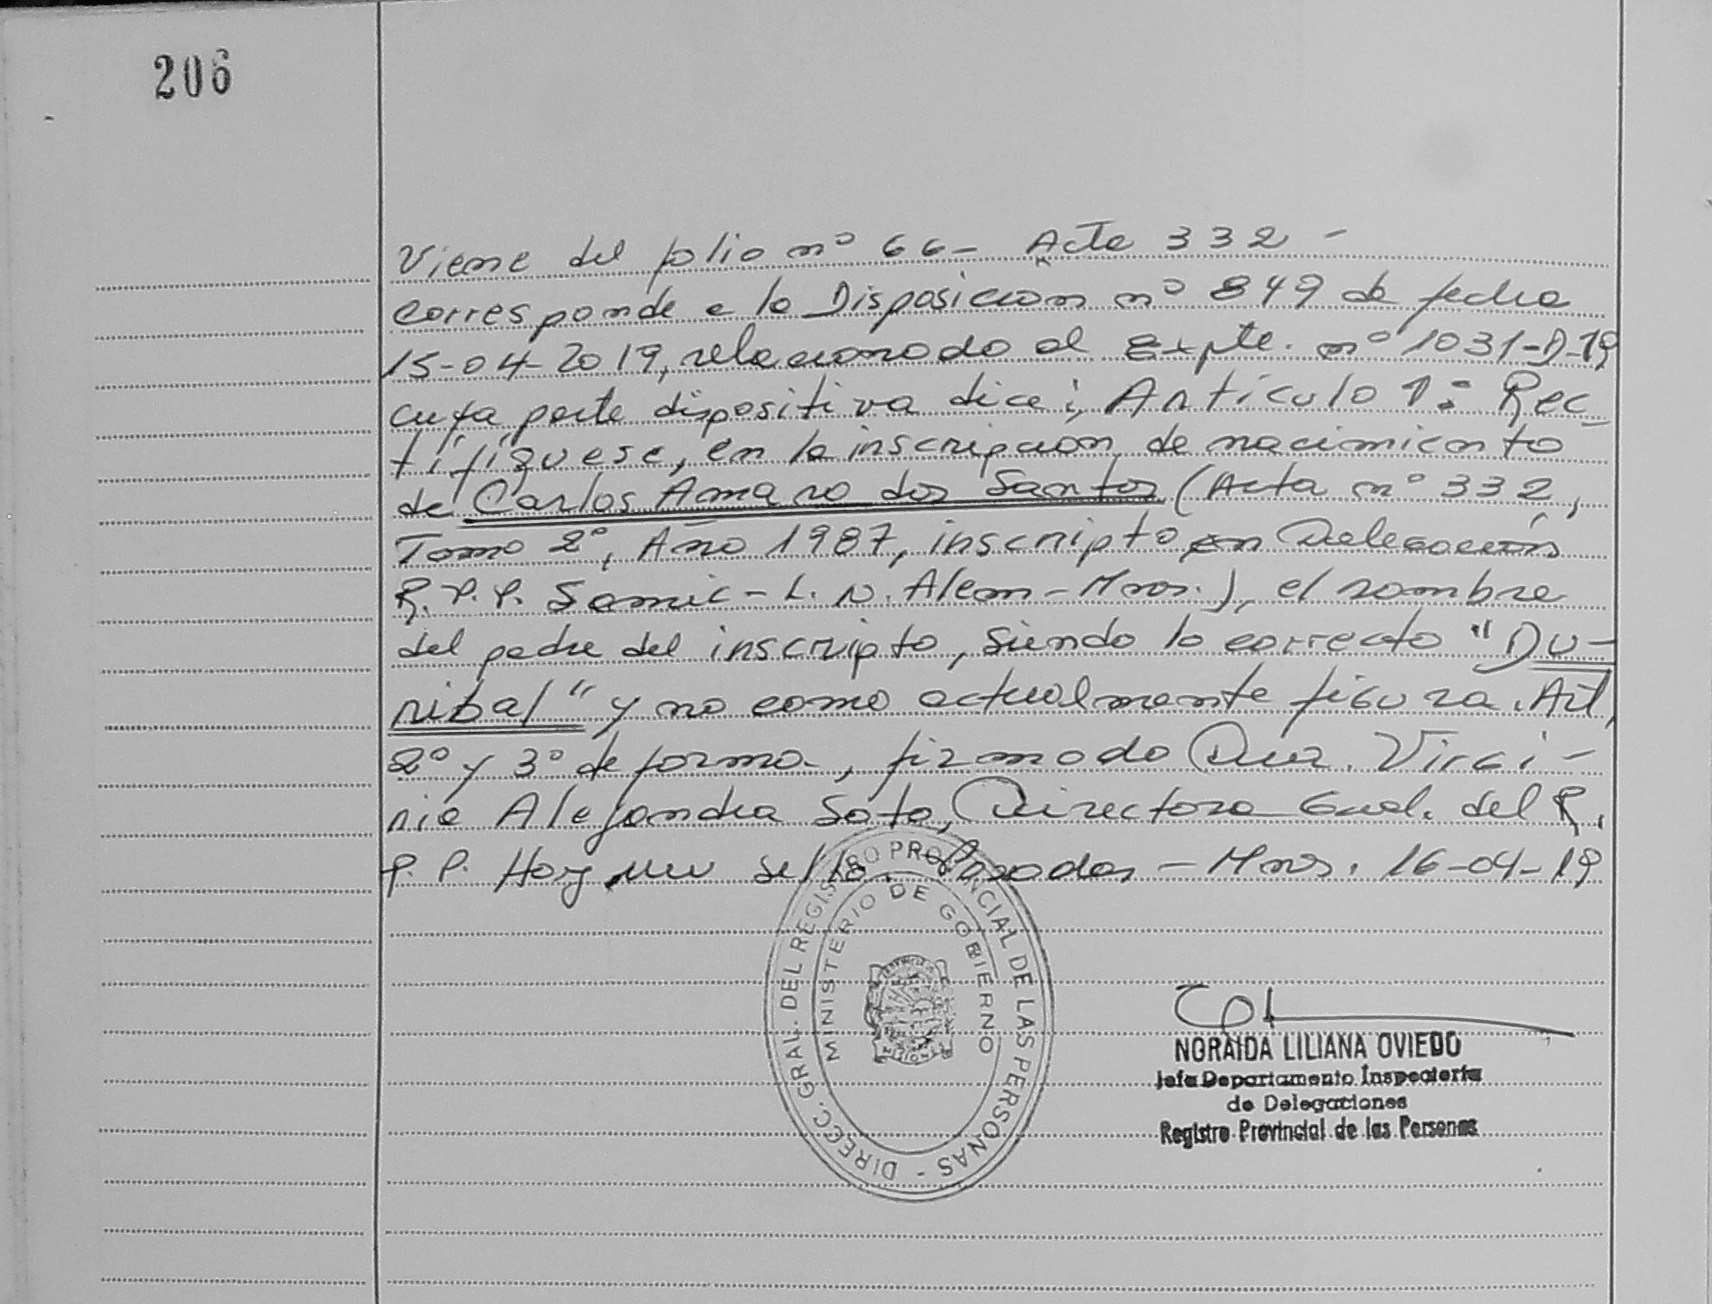 206
Viene del folio nº 66 - Acta 332 -
corresponde a la Disposición nº 849 de fecha
15-04-2019, relacionado al Expte. nº 1031-D-19
cuya parte dispositiva dice: Artículo 1º: Rec-
tifíquese, en la inscripción de nacimiento
de Carlos Amaro dos Santos (Acta nº 332,
Tomo 2º, Año 1987, inscripto en Delegación
R.P.P. Samic - L. N. Alem - Mnes.), el nombre
del padre del inscripto, siendo lo correcto "Du-
ribal" y no como actualmente figura. Art.
2º y 3º de forma -, firmado Dra. Virgi-
nia Alejandra Soto, Directora Gral. del R.
P. P. Hay un sello. Posadas - Mnes. 16-04-19
DIRECC. GRAL. DEL REGISTRO PROVINCIAL DE LAS PERSONAS -
MINISTERIO DE GOBIERNO
MISIONES
NORAIDA LILIANA OVIEDO
Jefa Departamento Inspectoría
de Delegaciones
Registro Provincial de las Personas